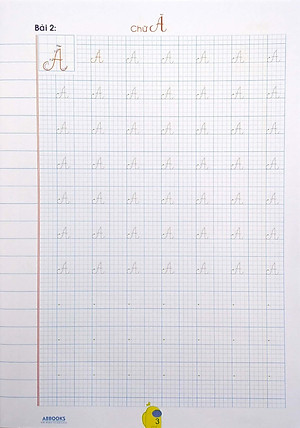 Bài 2:
Chữ Ă
Ă Ă Ă Ă Ă Ă Ă
Ă Ă Ă Ă Ă Ă Ă
Ă Ă Ă Ă Ă Ă Ă
Ă Ă Ă Ă Ă Ă Ă
Ă Ă Ă Ă Ă Ă Ă
Ă Ă Ă Ă Ă Ă Ă
Ă Ă Ă Ă Ă Ă Ă
ABBOOKS
3